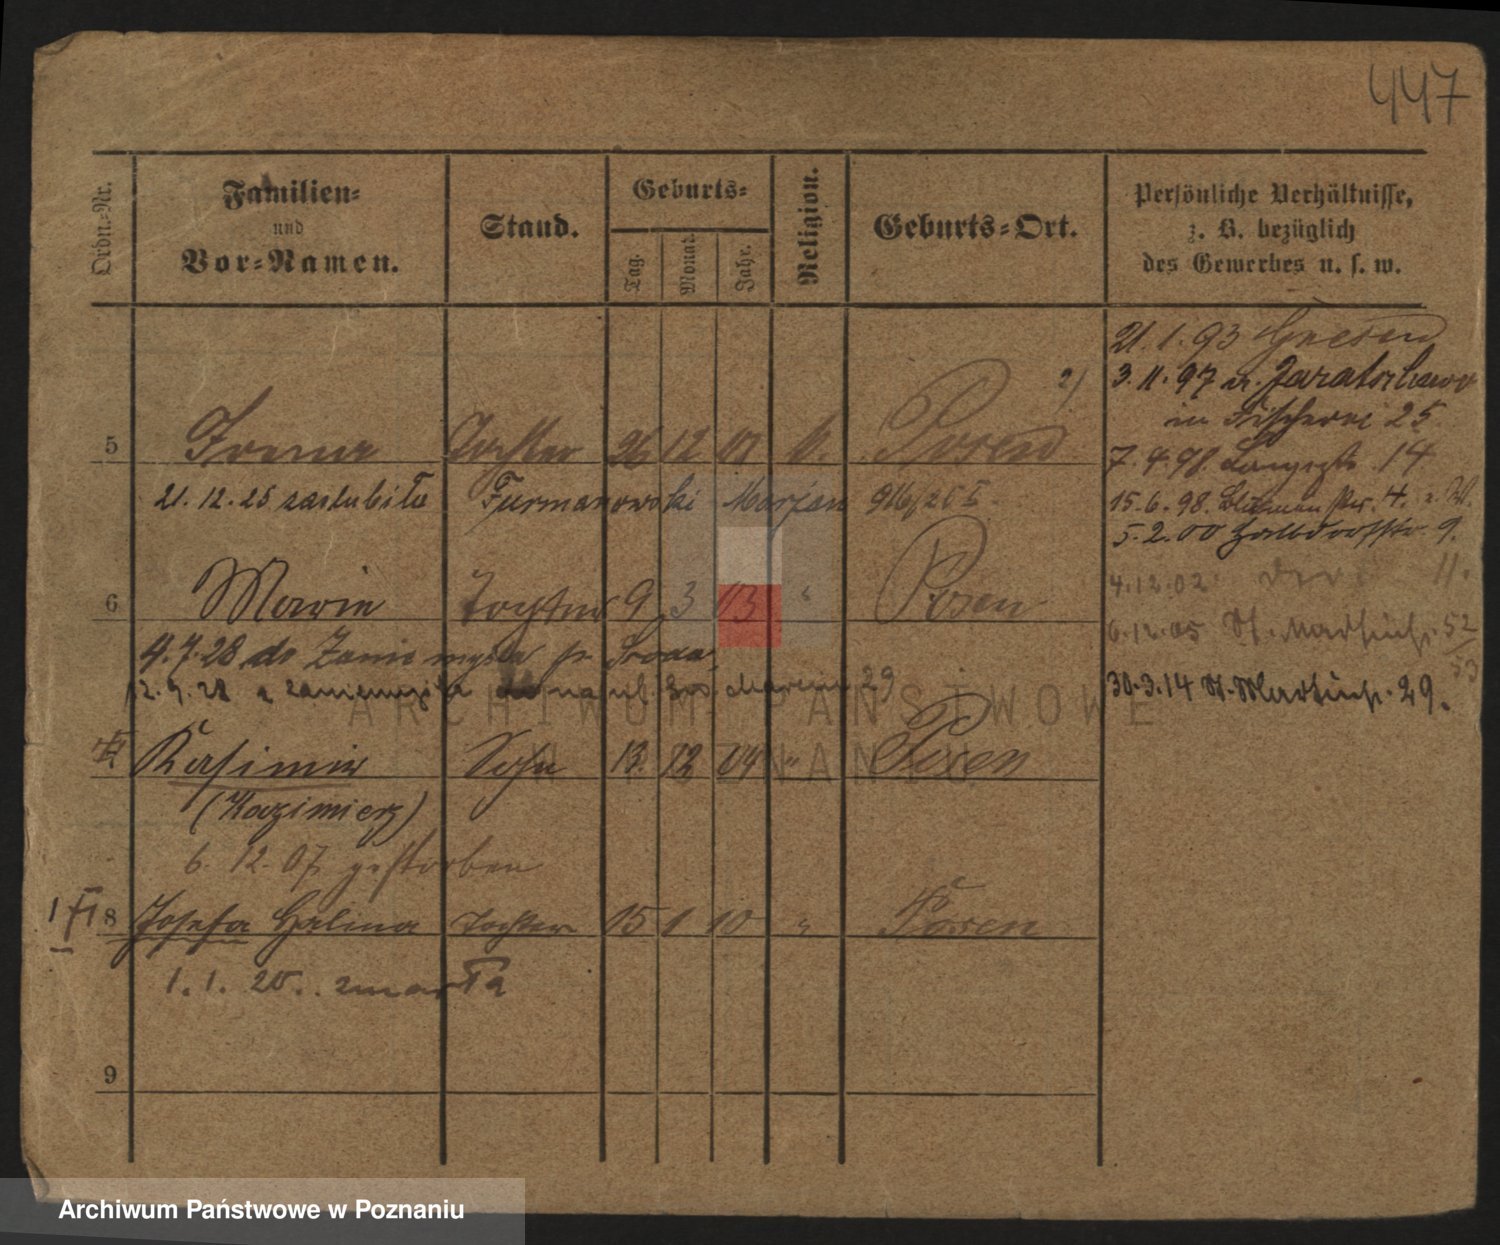 447
Ordn.-Nr.
Familien-
und
Vor-Namen.
Stand.
Geburts-
Tag.
Monat.
Jahr.
Religion.
Geburts-Ort.
Persönliche Verhältnisse,
z. B. bezüglich
des Gewerbes u. s. w.
21.1.93 Gnesen
3.11.97 in
in Fischerei 25
7.4.98. 14
15.6.98. 4.
5.2.00 Halbdorfstr. 9.
4.12.02 11.
6.12.05 St. Martinstr. 52/53
30.3.14 St. Martinstr. 29.
5 Irena Tochter 26 12 01 k. 2) Posen
21.12.25 zaślubiła Furmanowski Marjan 916/25 I.
6 Marie Tochter 9 3 03 " Posen
4.7.28 do Zaniemyśla p. Środa,
12.9.28 z Zaniemyśla na ul. Św. Marcin 29
Kasimir Sohn 13. 12 04 " Posen
(Kazimierz)
6. 12. 07 gestorben
8 Josefa Halina Tochter 15 1 10 " Posen
1. 1. 20.. zmarła
9
ARCHIWUM PAŃSTWOWE
W POZNANIU
Archiwum Państwowe w Poznaniu